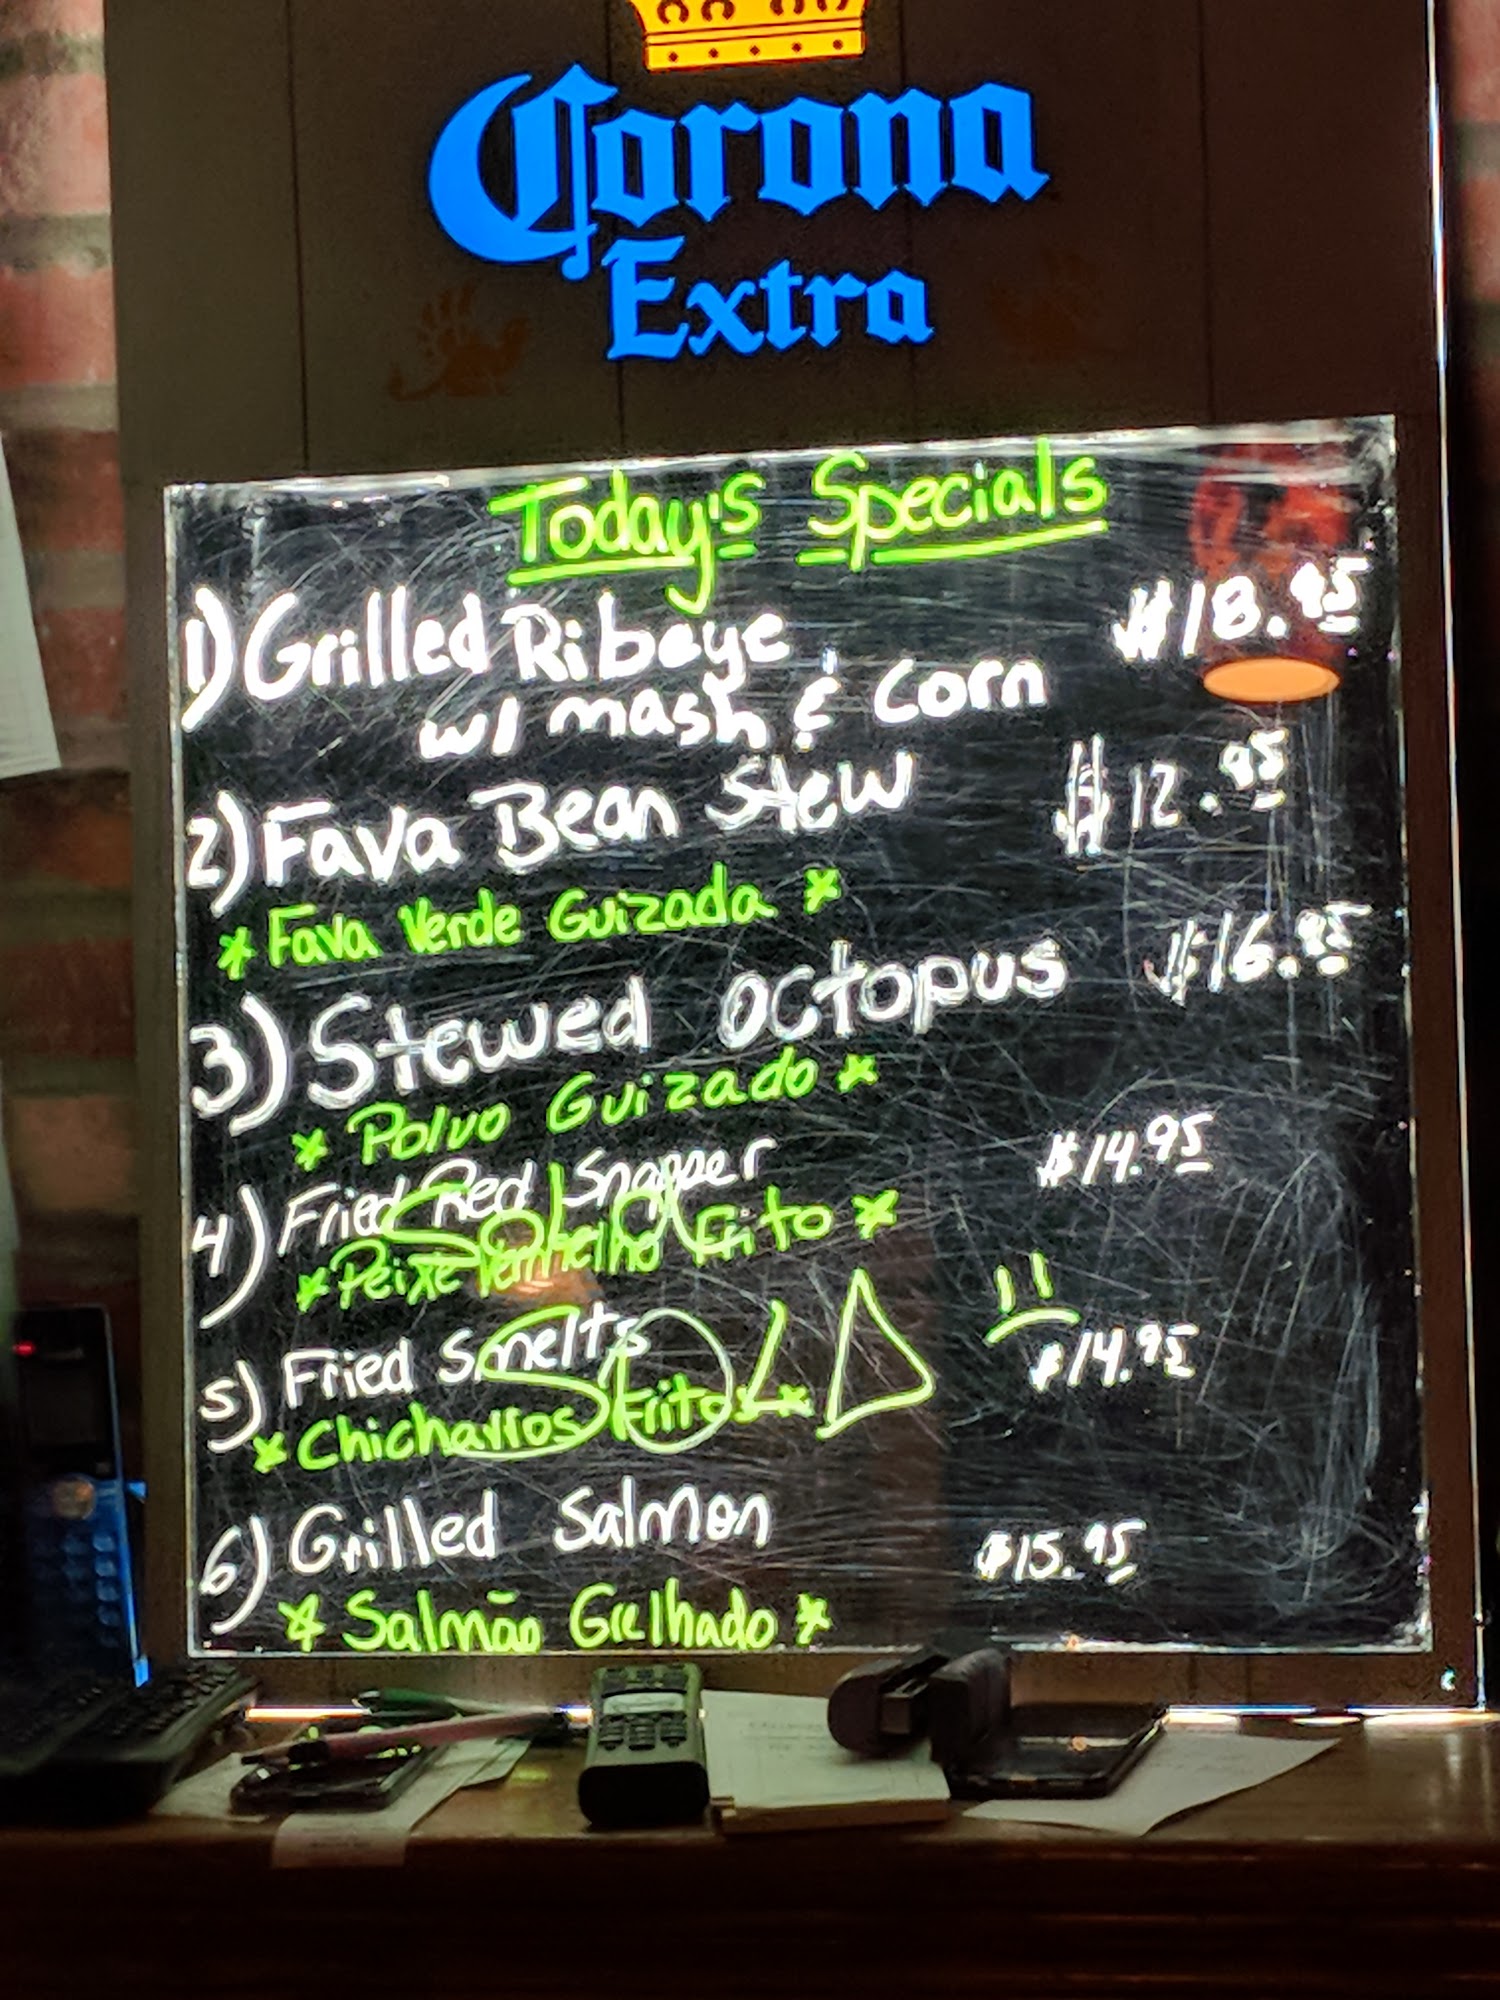 Corona
Extra
Today's Specials
1) Grilled Ribeye $18.95
w/ mash & corn
2) Fava Bean Stew $12.95
* Fava Verde Guizada *
3) Stewed Octopus $16.95
* Polvo Guizado *
4) Fried Red Snapper $14.95
Sold
* Peixe Vermelho Frito *
5) Fried Smelts $14.95
SOLD
* Chicharros Fritos *
6) Grilled Salmon $15.95
* Salmão Grelhado *